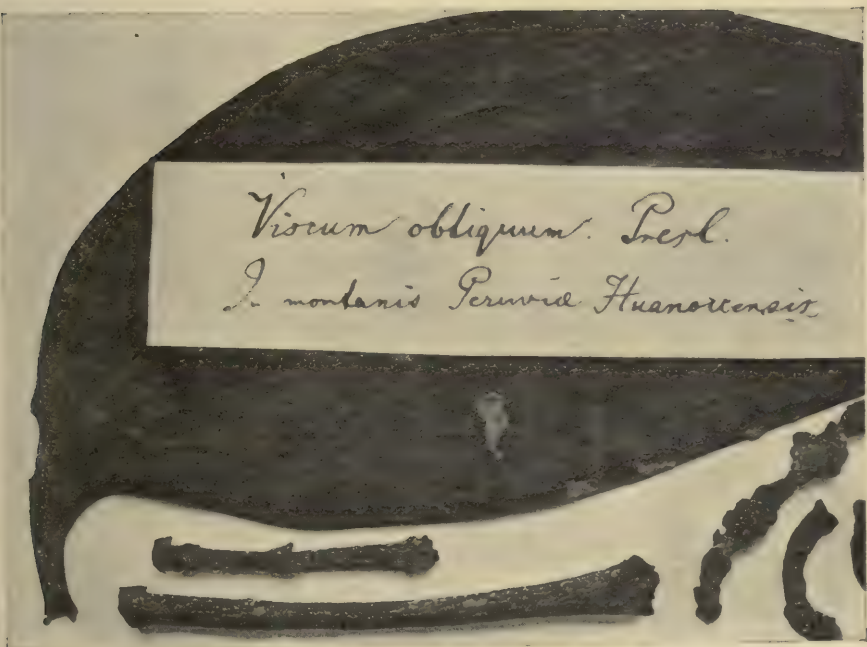 Viscum obliquum. Presl.
In montanis Peruviæ Huanoccensis.